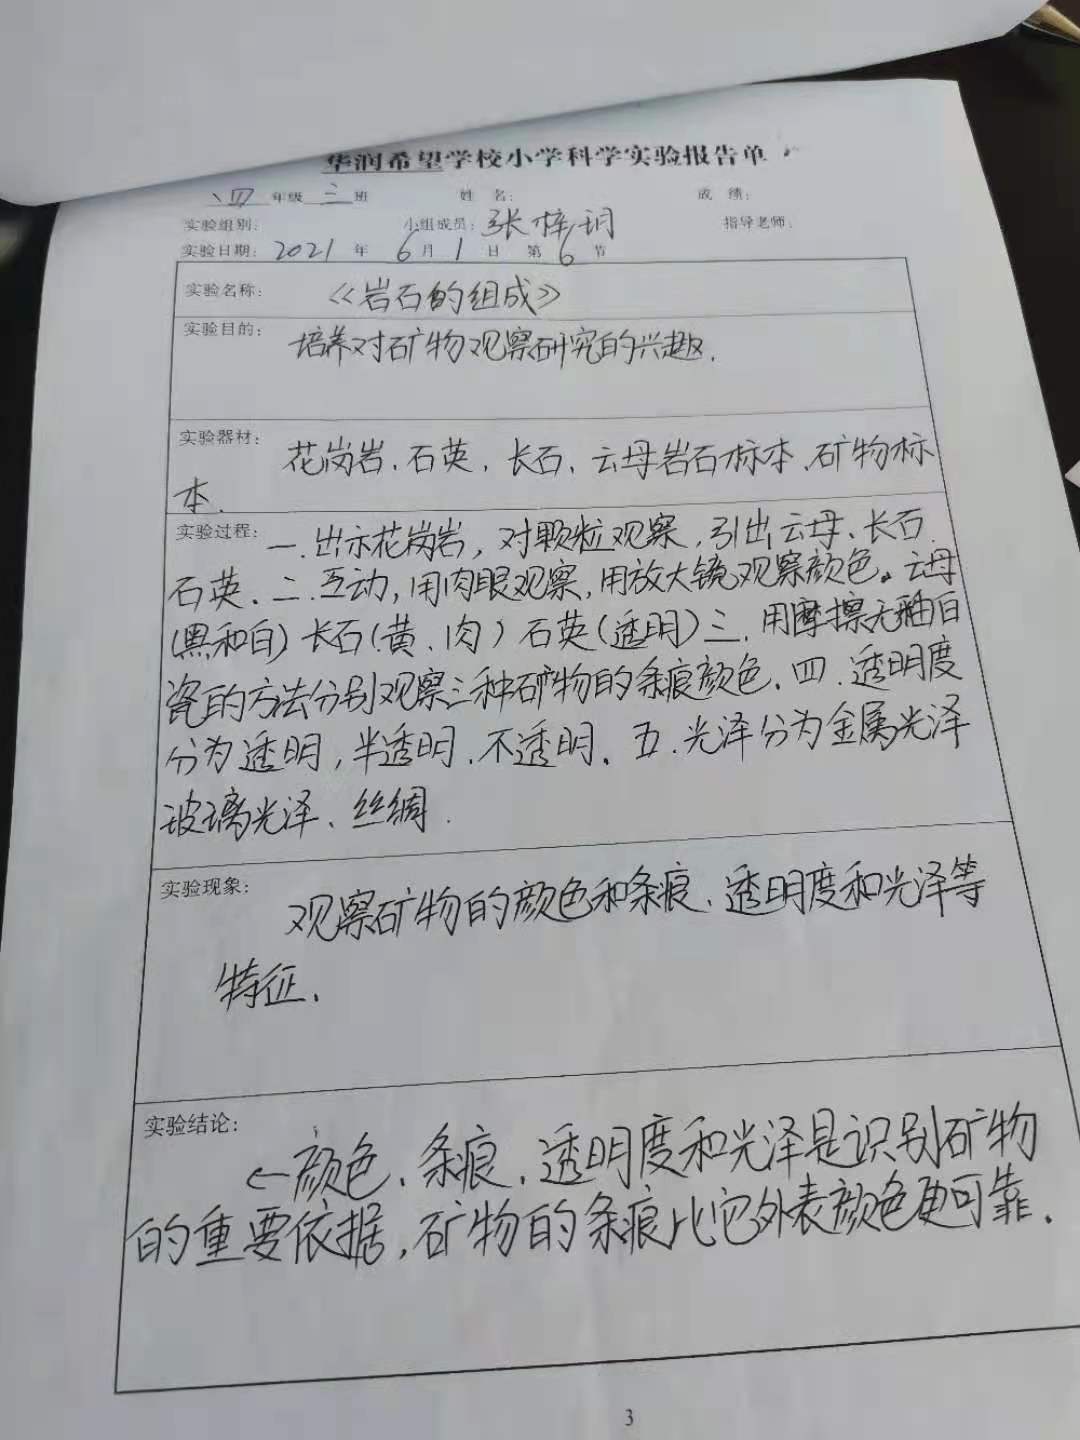 华润希望学校小学科学实验报告单
四 年级 三 班 姓 名: 成 绩:
实验组别: 小组成员: 张梓玥 指导老师:
实验日期: 2021 年 6 月 1 日 第 6 节
实验名称: 《岩石的组成》
实验目的: 培养对矿物观察研究的兴趣.
实验器材: 花岗岩、石英、长石、云母岩石标本、矿物标
本.
实验过程: 一.出示花岗岩,对颗粒观察,引出云母、长石.
石英.二.互动,用肉眼观察,用放大镜观察颜色。云母
(黑和白)长石(黄、肉)石英(透明)三.用摩擦无釉白
瓷的方法分别观察三种矿物的条痕颜色.四.透明度
分为透明,半透明.不透明.五.光泽分为金属光泽
玻璃光泽、丝绸.
实验现象: 观察矿物的颜色和条痕、透明度和光泽等
特征.
实验结论: ←颜色、条痕、透明度和光泽是识别矿物
的重要依据,矿物的条痕比它外表颜色更可靠.
3